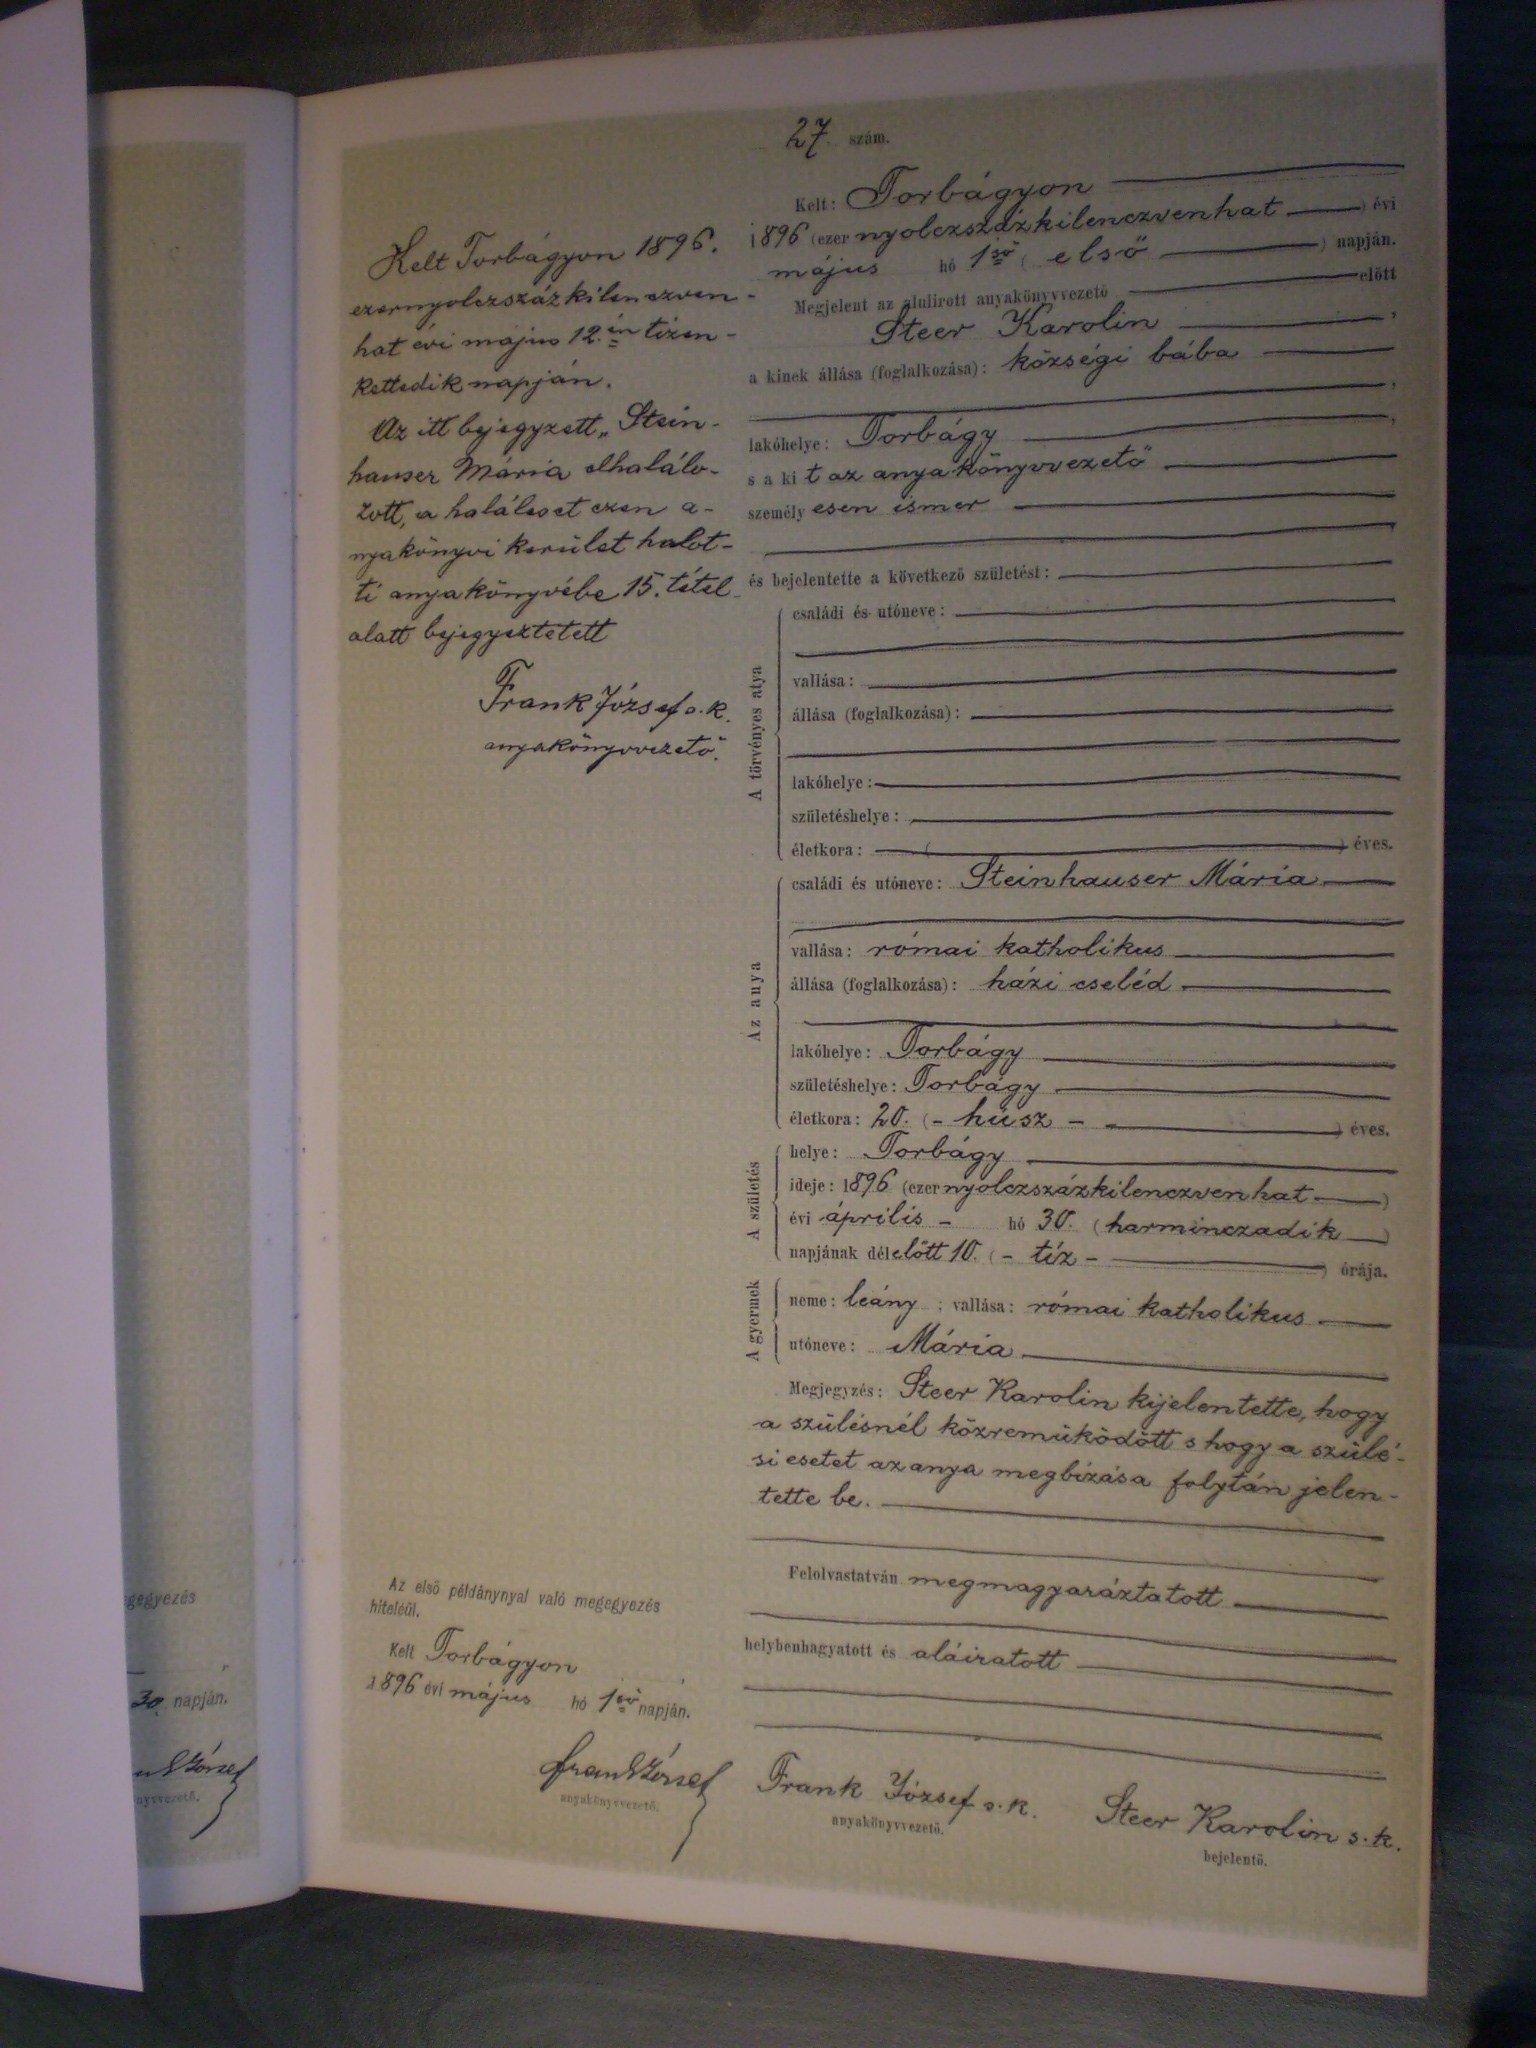 27. szám.
Kelt: Torbágyon
1896 (ezer nyolczszázkilenczvenhat) évi
május hó 1ső (első) napján.
Megjelent az alulirott anyakönyvvezető előtt
Steer Karolin,
a kinek állása (foglalkozása): községi bába
,
lakóhelye: Torbágy,
s a kit az anyakönyvvezető
személyesen ismer
és bejelentette a következő születést:
A törvényes atya
családi és utóneve:
vallása:
állása (foglalkozása):
lakóhelye:
születéshelye:
életkora: ( ) éves.
Az anya
családi és utóneve: Steinhauser Mária
vallása: római katholikus
állása (foglalkozása): házi cseléd
lakóhelye: Torbágy
születéshelye: Torbágy
életkora: 20. (- húsz -) éves.
A születés
helye: Torbágy
ideje: 1896 (ezer nyolczszázkilenczvenhat)
évi április - hó 30. (harminczadik)
napjának délelőtt 10. (- tíz -) órája.
A gyermek
neme: leány; vallása: római katholikus
utóneve: Mária
Megjegyzés: Steer Karolin kijelentette, hogy
a szülésnél közreműködött s hogy a szülé-
si esetet az anya megbízása folytán jelen-
tette be.
Felolvastatván megmagyaráztatott
helybenhagyatott és aláiratott
Frank József s. k.
anyakönyvvezető.
Steer Karolin s. k.
bejelentő.
Kelt Torbágyon 1896.
ezernyolczszázkilenczven-
hat évi május 12.én tizen-
kettedik napján.
Az itt bejegyzett „Stein-
hauser Mária elhalálo-
zott, a haláleset ezen a-
nyakönyvi kerület halot-
ti anyakönyvébe 15. tétel
alatt bejegyeztetett
Frank József s. k.
anyakönyvvezető.
Az első példánynyal való megegyezés
hiteléül.
Kelt Torbágyon
1896 évi május hó 1ső napján.
Frank József
anyakönyvvezető.
gegyezés
30. napján.
József
nyvvezető.